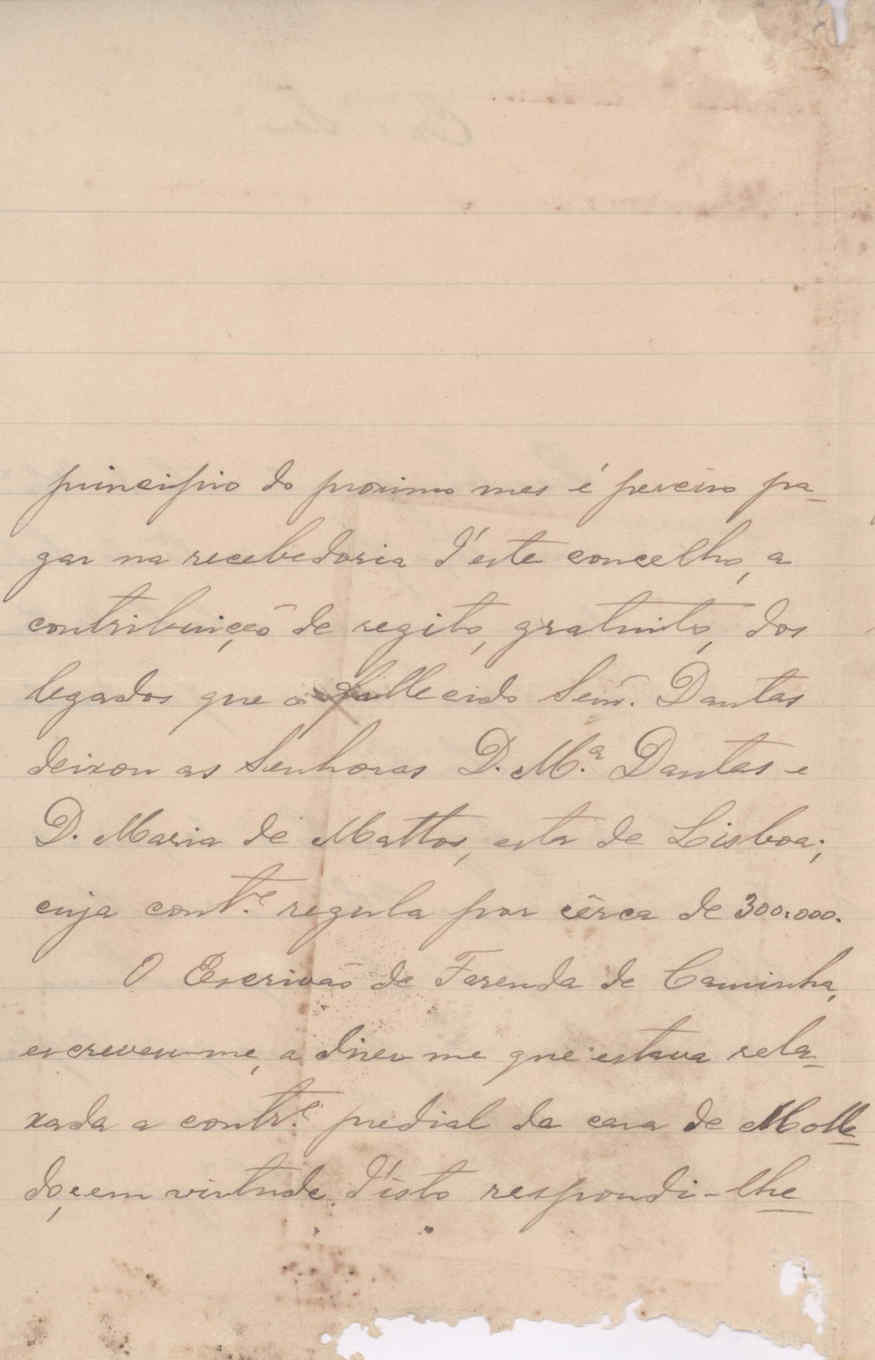 principio do proximo mes é perciso pa-
gar na recebedoria d'este concelho, a
contribuição de regito, gratuito, dos
legados que o fallecido Senr. Dantas
deixou as Senhoras D. M.ª Dantas e
D. Maria de Mattos, esta de Lisboa;
cuja cont.e regula por cêrca de 300.000.
O Escrivão de Fazenda de Caminha,
escreveu-me, a dizer me que estava rela-
xada a contr.e predial da casa de Molle
do, e em virtude d'isto respondi-lhe